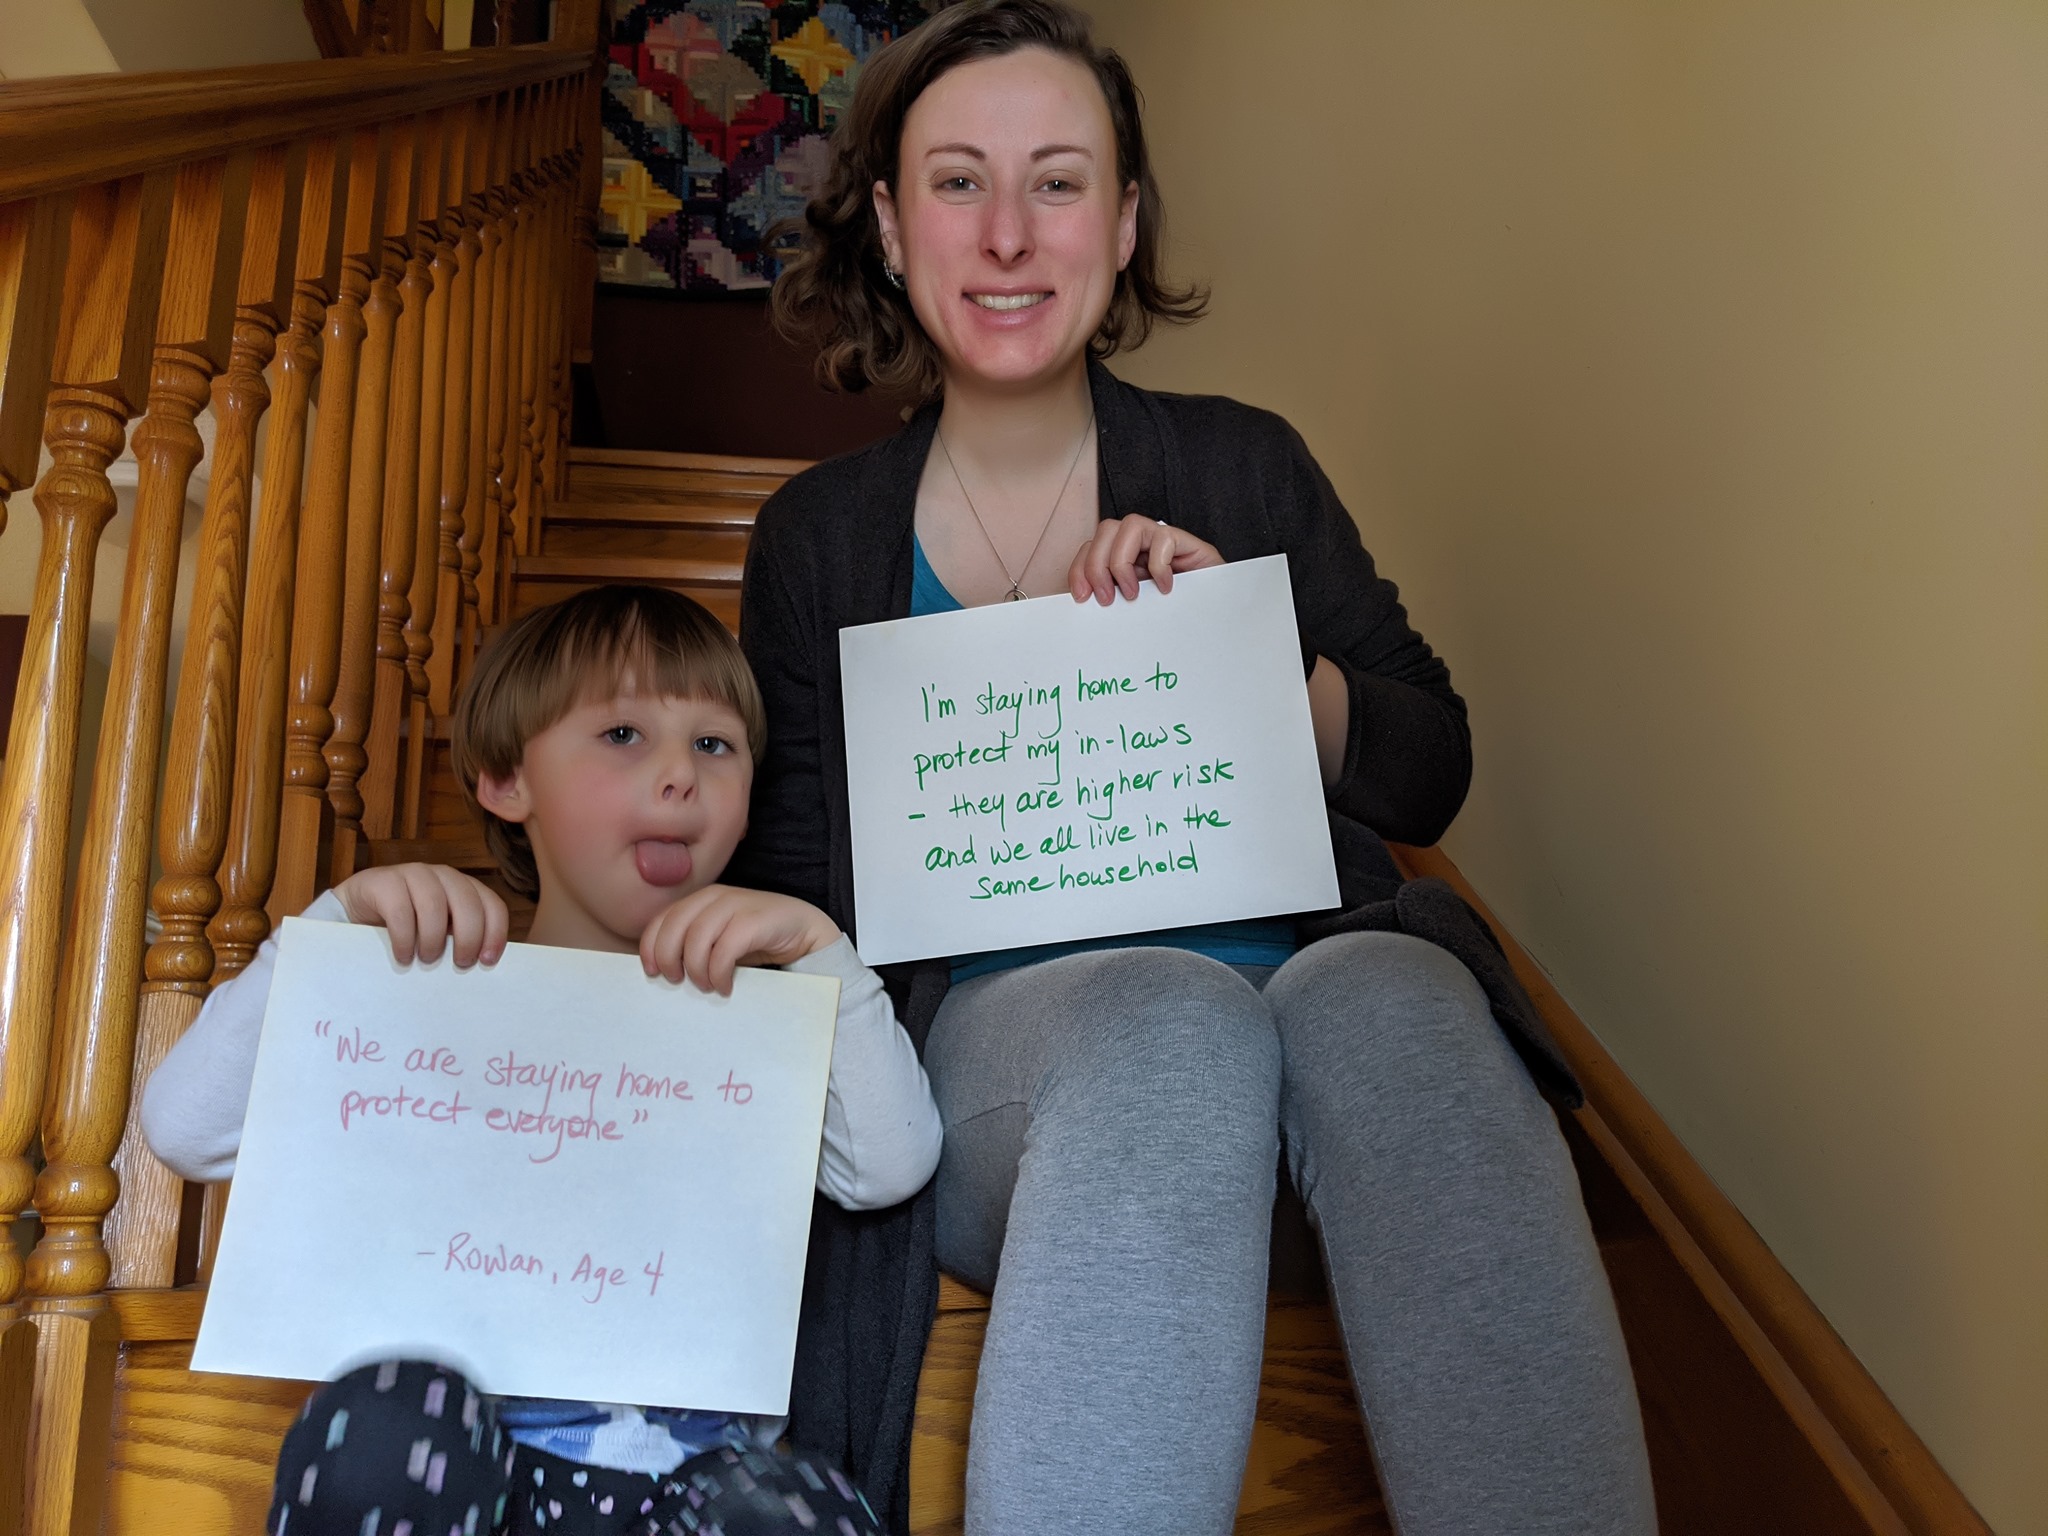 I'm staying home to
protect my in-laws
- they are higher risk
and we all live in the
same household
"We are staying home to
protect everyone"
- Rowan, Age 4